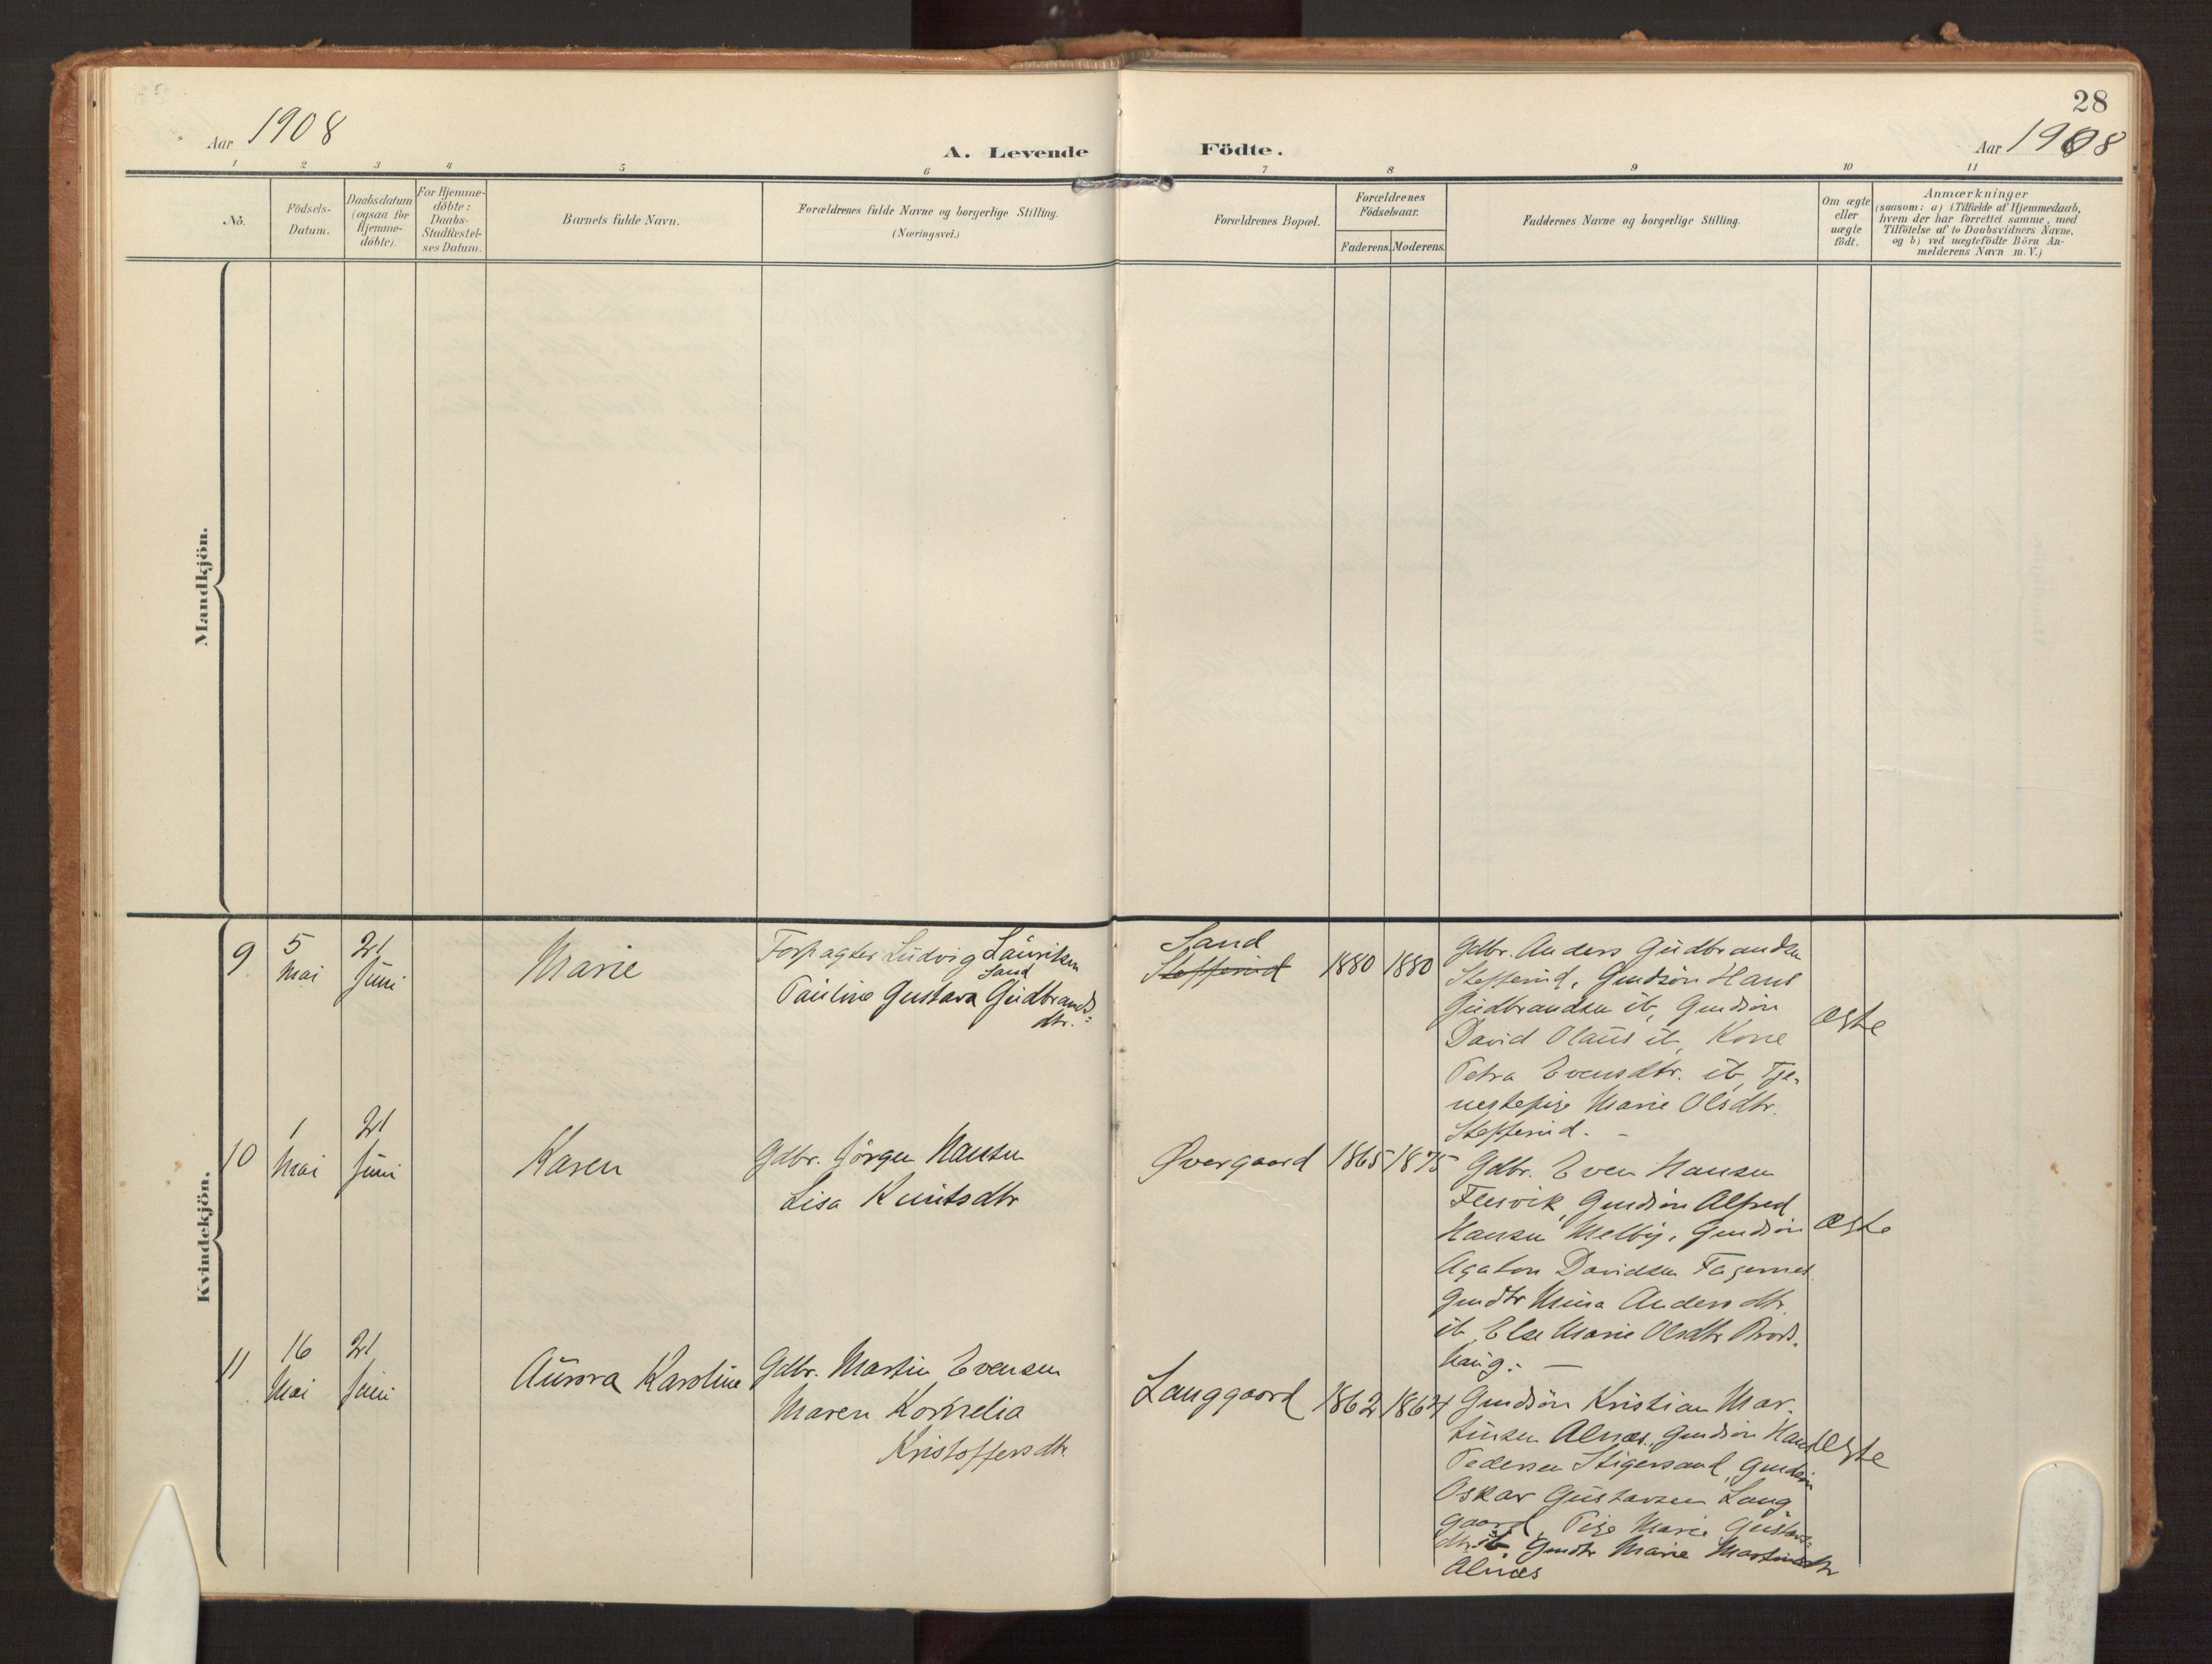 28
Aar 1908
A. Levende Födte.
Aar 1908
1 2 3 4 5 6 7 8 9 10 11
Nö.
Födsels-
Datum.
Daabsdatum
(ogsaa for
Hjemme-
döbte).
For Hjemme-
döbte:
Daabs-
Stadfæstel-
ses Datum.
Barnets fulde Navn.
Forældrenes fulde Navne og borgerlige Stilling.
(Næringsvei.)
Forældrenes Bopæl.
Forældrenes
Födselsaar.
Faderens. Moderens.
Faddernes Navne og borgerlige Stilling.
Om ægte
eller
uægte
födt.
Anmærkninger
(saasom: a) i Tilfælde af Hjemmedaab,
hvem der har forrettet samme, med
Tilföielse af to Daabsvidners Navne,
og b) ved uægtefödte Börn An-
melderens Navn m. V.)
Mandkjön.
Kvindekjön.
9
5
Mai
21
Juni
Marie
Forpagter Ludvig Lauritsen
Sand
Pauline Gustava Gudbrands-
dtr.
Sand
Stefferud
1880 1880
Gdbr. Anders Gudbrandsen
Stefferud, Gmdsön Hans
Gudbrandsen ib, Gmdsön
David Olaus ib, Kone
Petra Evensdtr. ib, Tje-
nestepige Marie Olsdtr.
Stefferud. -
ægte
10
1
Mai
21
Juni
Karen
Gdbr. Jörgen Hansen
Lisa Knutsdtr
Øvergaard
1865 1875
Gdbr. Even Hansen
Flesvik, Gmdsön Alfred
Hansen Melby, Gmdsön
Agaton Davidsen Fagernes
Gmdtr Mina Andersdtr.
ib, Else Marie Olsdtr Brods-
haug. -
ægte
11
16
Mai
21
Juni
Aurora Karoline
Gdbr. Martin Evensen
Maren Kornelia
Kristoffersdtr.
Langgaard
1862 1864
Gmdsön Kristian Mar-
tinsen Alnæs, Gmdsön Hans
Pedersen Stigersand, Gmdsön
Oskar Gustavsen Lang
gaard, Pige Marie Gustavs-
dtr. ib, Gmdtr Marie Martinsdtr
Alnæs
ægte